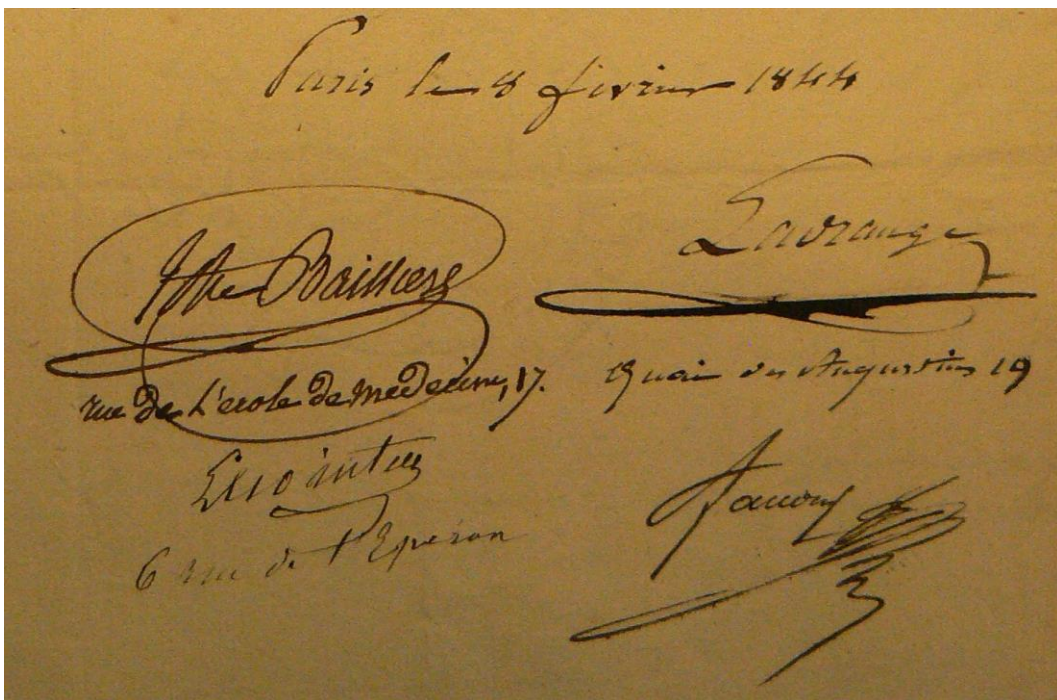 Paris le 8 février 1844
JB Baillière
rue de L'école de médecine, 17.
Lavrange
quai des Augustins 19
6 rue de l'Eperon